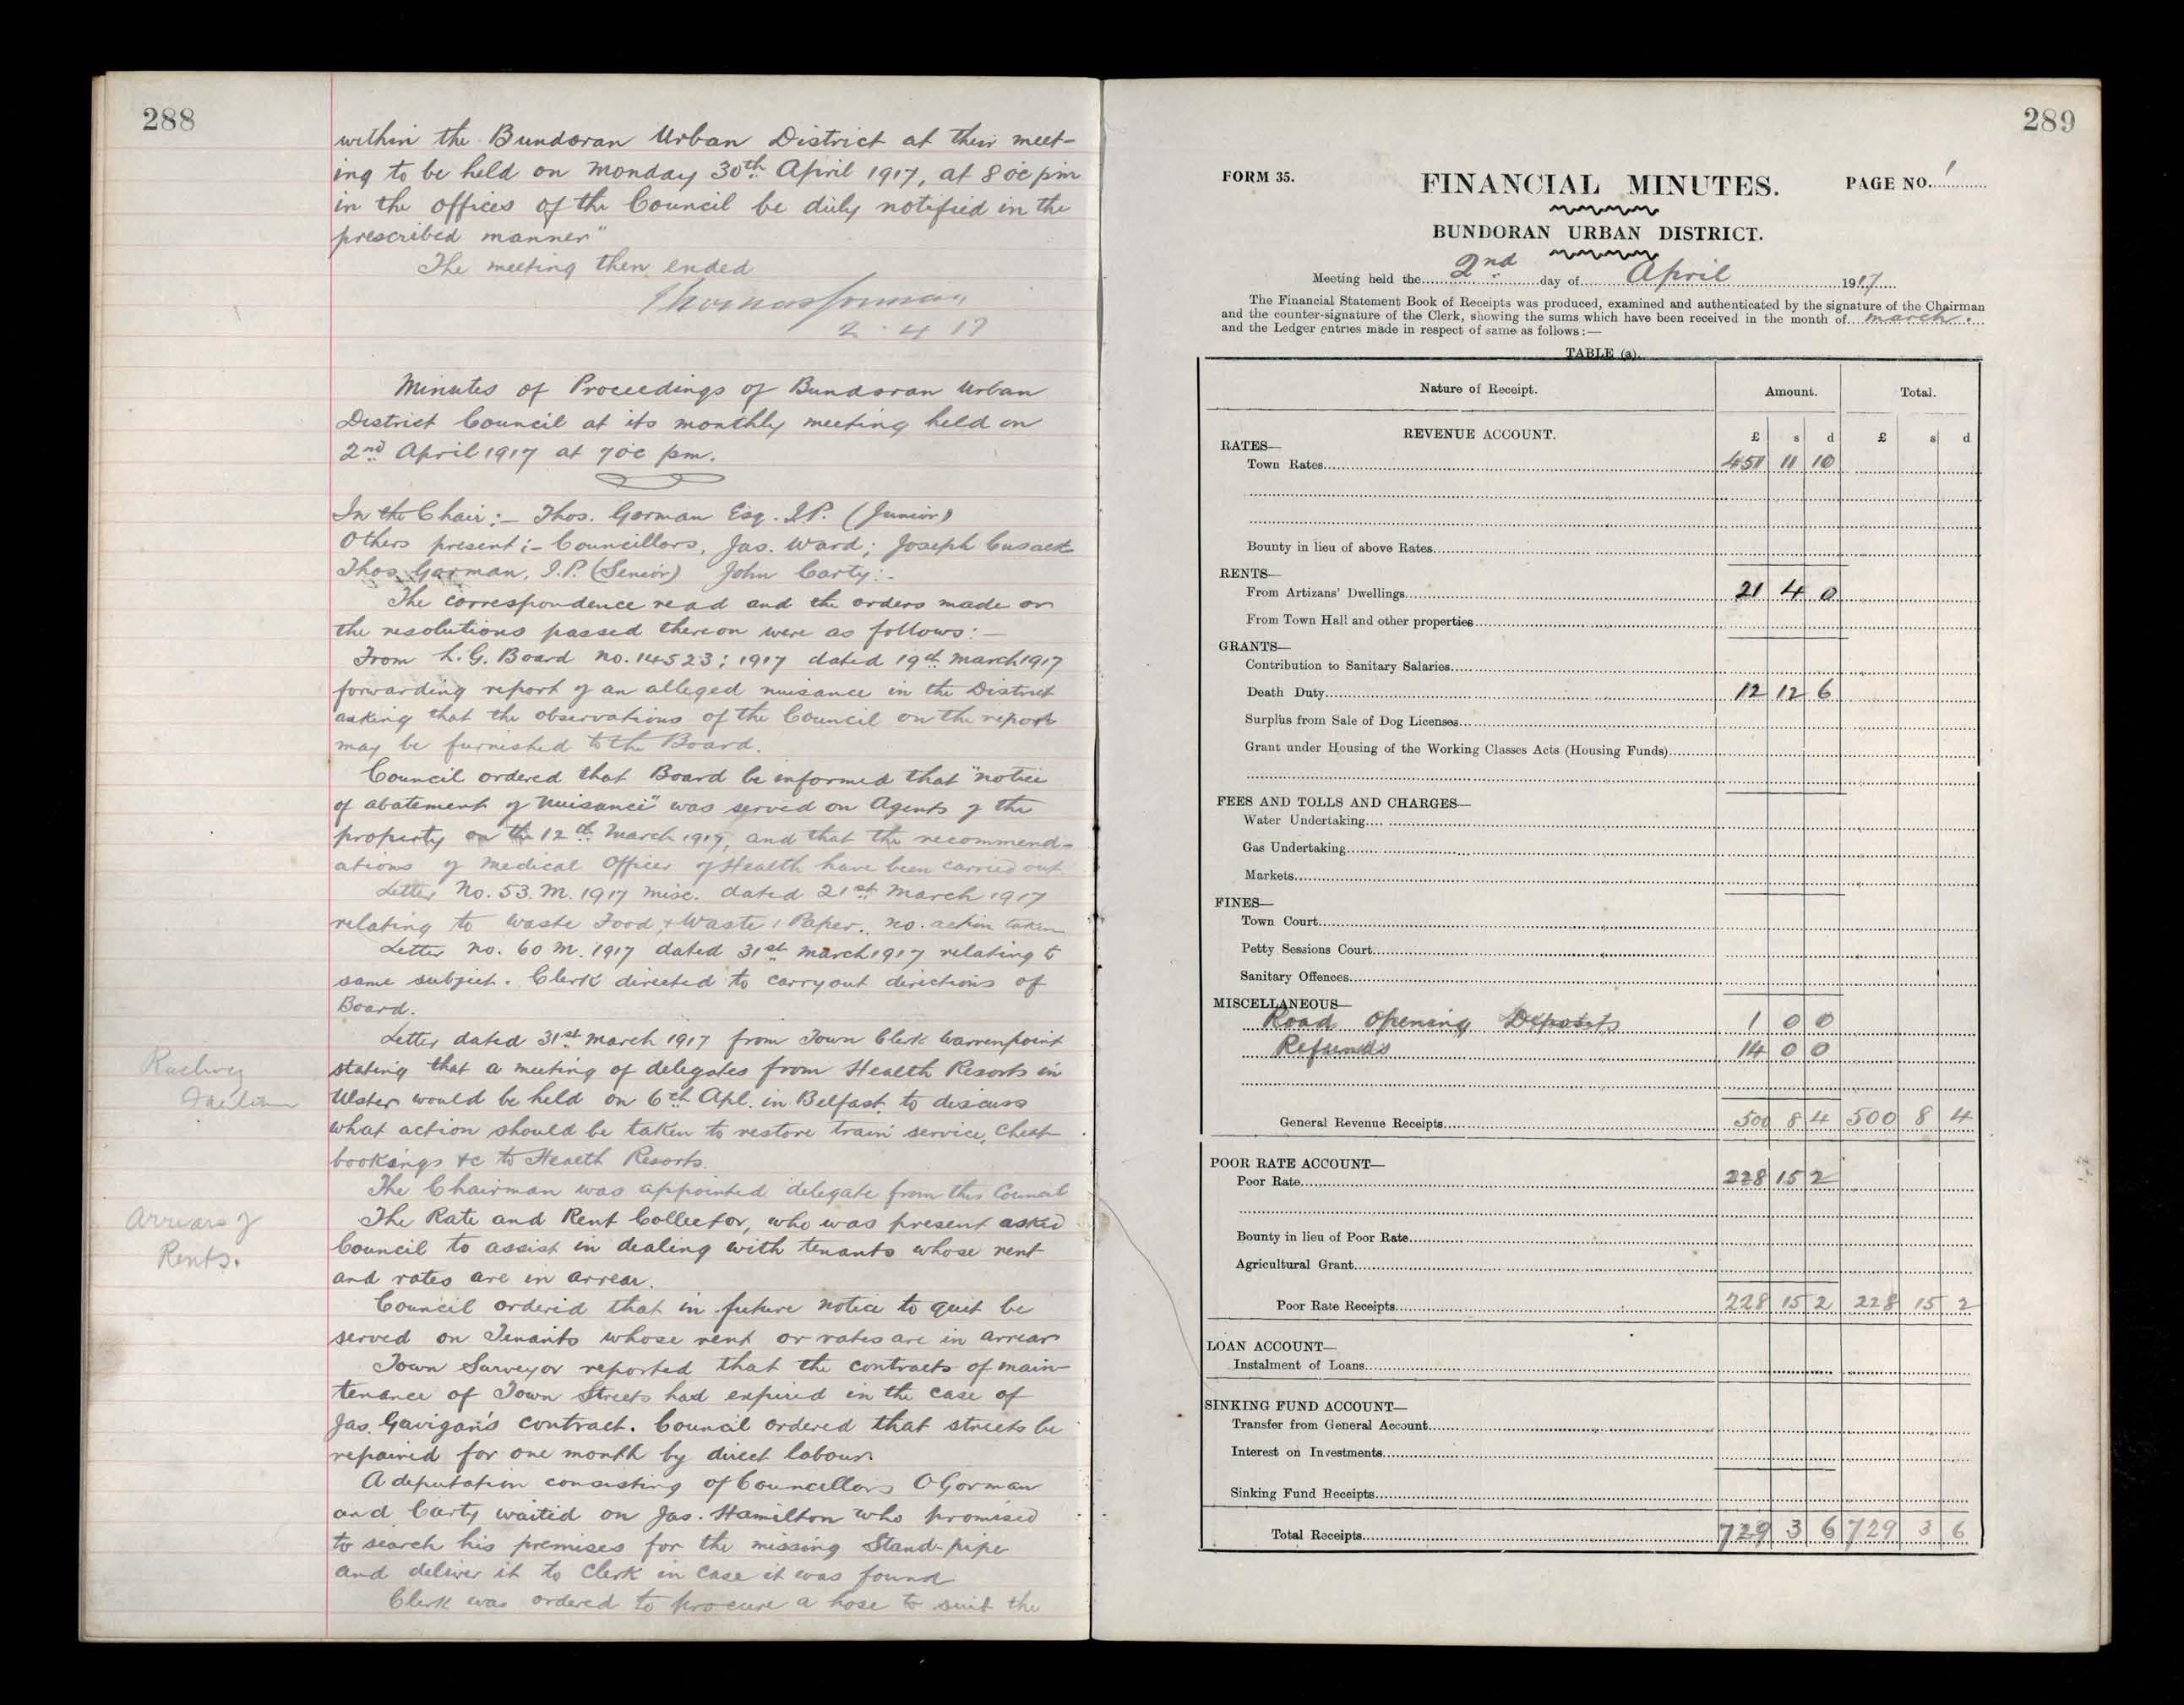 288
within the Bundoran Urban District at their meet-
ing to be held on Monday 30th April 1917, at 8 oc pm
in the offices of the Council be duly notified in the
prescribed manner"
The meeting then ended
Thomas Gorman
2 · 4 17
Minutes of Proceedings of Bundoran Urban
District Council at its monthly meeting held on
2nd April 1917 at 7 oc pm.
In the Chair:— Thos. Gorman Esq. J.P. (Junior)
Others present:- Councillors, Jas. Ward; Joseph Cusack
Thos Gorman, J.P. (Senior) John Carty:-
The correspondence read and the orders made or
the resolutions passed thereon were as follows:—
From L.G. Board no. 14523: 1917 dated 19th March 1917
forwarding report of an alleged nuisance in the District
asking that the observations of the Council on the report
may be furnished to the Board.
Council ordered that Board be informed that "notice
of abatement of nuisance" was served on Agents of the
property on the 12th March 1917, and that the recommend-
ations of Medical Officer of Health have been carried out
Letter No. 53. M. 1917 misc. dated 21st March 1917
relating to Waste Food, & Waste Paper. no. action taken
Letter no. 60 M. 1917 dated 31st March 1917 relating to
same subject. Clerk directed to carry out directions of
Board.
Letter dated 31st March 1917 from Town Clerk Warrenpoint
Railway
stating that a meeting of delegates from Health Resorts in
Ulster would be held on 6th Apl. in Belfast to discuss
what action should be taken to restore train service, cheap
bookings &c to Health Resorts.
The Chairman was appointed delegate from this Council
Arrears of
Rents.
The Rate and Rent Collector, who was present asked
Council to assist in dealing with tenants whose rent
and rates are in arrear.
Council ordered that in future notice to quit be
served on Tenants whose rent or rates are in arrear
Town Surveyor reported that the contracts of main-
tenance of Town Streets had expired in the case of
Jas. Gavigan's contract. Council ordered that streets be
repaired for one month by direct labour
A deputation consisting of Councillors O'Gorman
and Carty waited on Jas. Hamilton who promised
to search his premises for the missing Stand-pipe
and deliver it to Clerk in case it was found
Clerk was ordered to procure a hose to suit the
289
FORM 35.
FINANCIAL MINUTES.
PAGE NO. 1
BUNDORAN URBAN DISTRICT.
Meeting held the 2nd day of April 1917
The Financial Statement Book of Receipts was produced, examined and authenticated by the signature of the Chairman
and the counter-signature of the Clerk, showing the sums which have been received in the month of march.
and the Ledger entries made in respect of same as follows:—
TABLE (a).
Nature of Receipt. Amount. Total.
REVENUE ACCOUNT. £ s d £ s d
RATES—
Town Rates 451 11 10
Bounty in lieu of above Rates
RENTS—
From Artizans' Dwellings 21 4 0
From Town Hall and other properties
GRANTS—
Contribution to Sanitary Salaries
Death Duty 12 12 6
Surplus from Sale of Dog Licenses
Grant under Housing of the Working Classes Acts (Housing Funds)
FEES AND TOLLS AND CHARGES—
Water Undertaking
Gas Undertaking
Markets
FINES—
Town Court
Petty Sessions Court
Sanitary Offences
MISCELLANEOUS—
Road Opening Deposits 1 0 0
Refunds 14 0 0
General Revenue Receipts 500 8 4 500 8 4
POOR RATE ACCOUNT—
Poor Rate 228 15 2
Bounty in lieu of Poor Rate
Agricultural Grant
Poor Rate Receipts 228 15 2 228 15 2
LOAN ACCOUNT—
Instalment of Loans
SINKING FUND ACCOUNT—
Transfer from General Account
Interest on Investments
Sinking Fund Receipts
Total Receipts 729 3 6 729 3 6